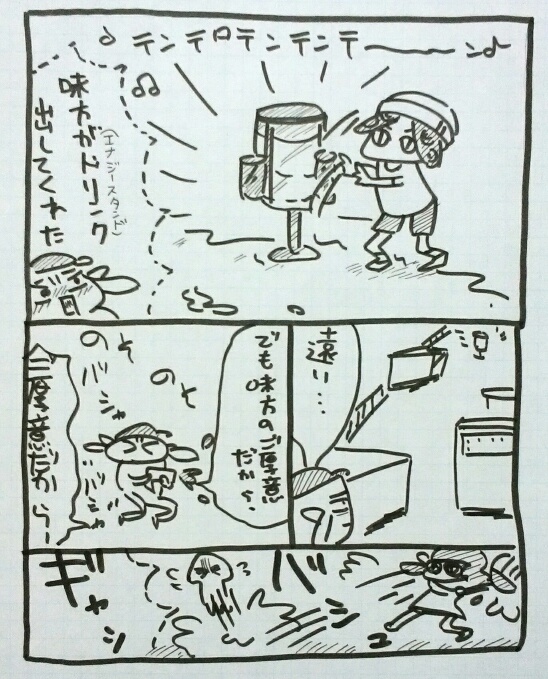 ♪テンテロテンテンテーーン♪
味方がドリンク
(エナジースタンド)
出してくれた
遠い…
でも味方のご厚意
だから…
のそ
のそ
バシャ
バシャ
ご厚意だから…
バシ
ギャン